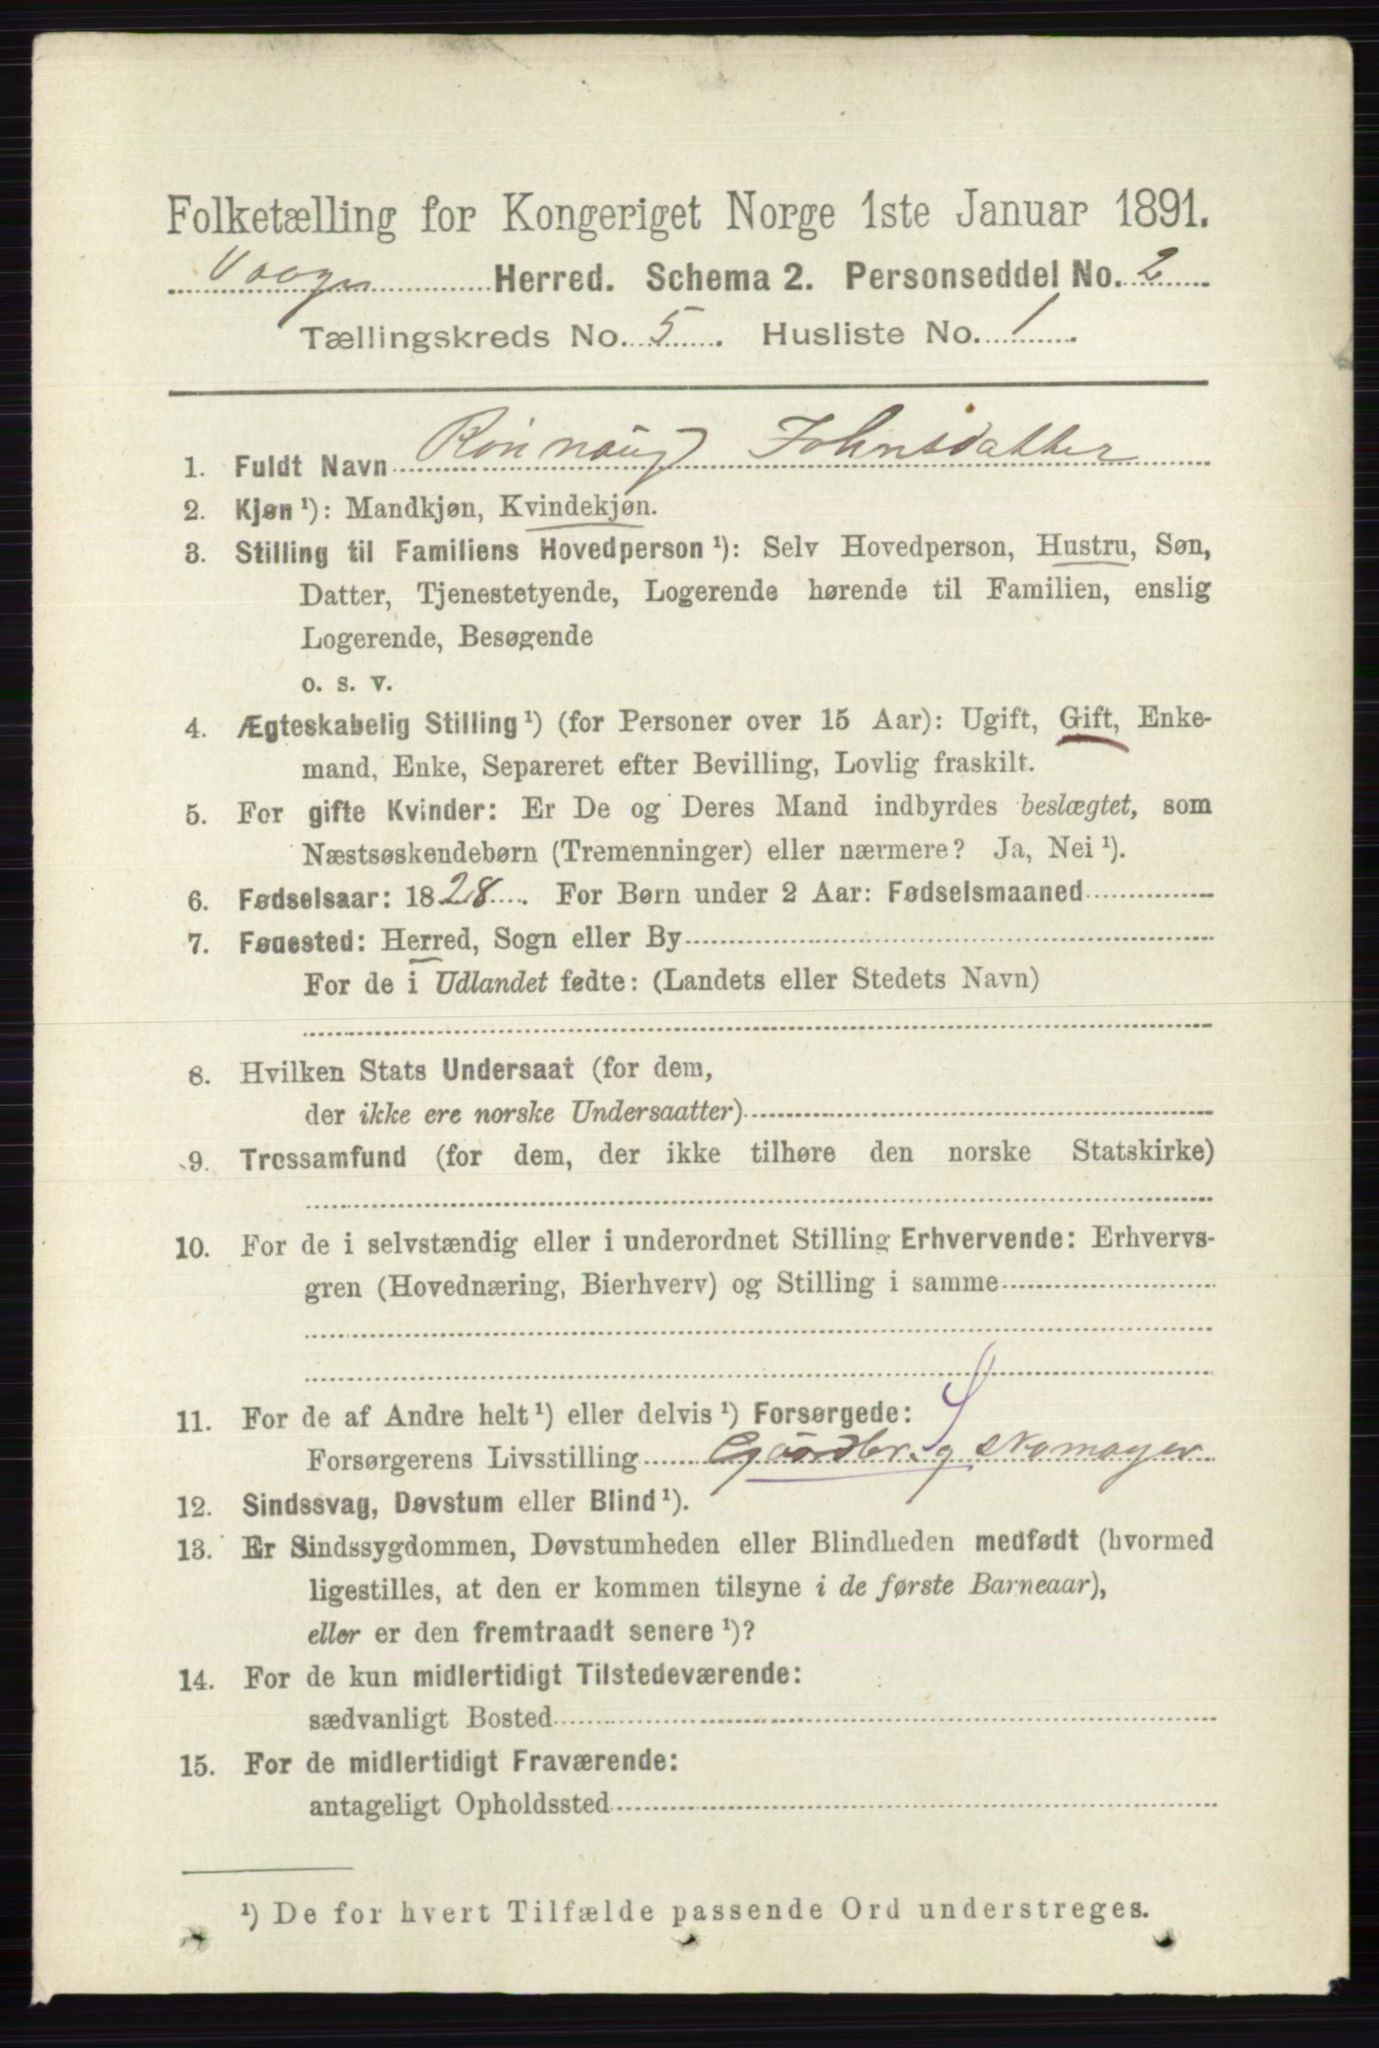 Folketælling for Kongeriget Norge 1ste Januar 1891.
Herred. Schema 2. Personseddel No. 2
Tællingskreds No. 5. Husliste No. 1.
1. Fuldt Navn Rönnaug Johnsdatter
2. Kjøn ¹): Mandkjøn, Kvindekjøn.
3. Stilling til Familiens Hovedperson ¹): Selv Hovedperson, Hustru, Søn,
Datter, Tjenestetyende, Logerende hørende til Familien, enslig
Logerende, Besøgende
o. s. v.
4. Ægteskabelig Stilling ¹) (for Personer over 15 Aar): Ugift, Gift, Enke-
mand, Enke, Separeret efter Bevilling, Lovlig fraskilt.
5. For gifte Kvinder: Er De og Deres Mand indbyrdes beslægtet, som
Næstsøskendebørn (Tremenninger) eller nærmere? Ja, Nei ¹).
6. Fødselsaar: 1828. For Børn under 2 Aar: Fødselsmaaned
7. Fødested: Herred, Sogn eller By
For de i Udlandet fødte: (Landets eller Stedets Navn)
8. Hvilken Stats Undersaat (for dem,
der ikke ere norske Undersaatter)
9. Trossamfund (for dem, der ikke tilhøre den norske Statskirke)
10. For de i selvstændig eller i underordnet Stilling Erhvervende: Erhvervs-
gren (Hovednæring, Bierhverv) og Stilling i samme
11. For de af Andre helt ¹) eller delvis ¹) Forsørgede:
Forsørgerens Livsstilling Gaardbr. og skomager
12. Sindssvag, Døvstum eller Blind ¹).
13. Er Sindssygdommen, Døvstumheden eller Blindheden medfødt (hvormed
ligestilles, at den er kommen tilsyne i de første Barneaar),
eller er den fremtraadt senere ¹)?
14. For de kun midlertidigt Tilstedeværende:
sædvanligt Bosted
15. For de midlertidigt Fraværende:
antageligt Opholdssted
¹) De for hvert Tilfælde passende Ord understreges.